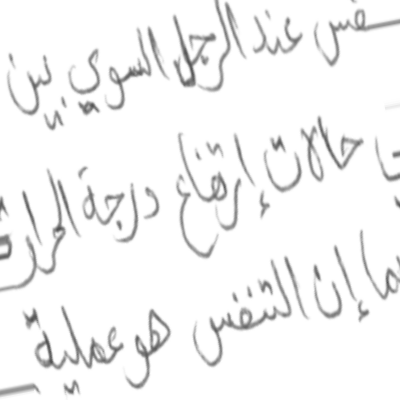 عند الرجل السوي بين
حالات إرتفاع درجة
إن التنفس هو عملية